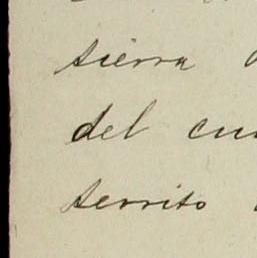 sierra
del
territo